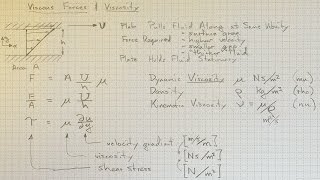 Viscous Forces & Viscosity
U
Plate Pulls Fluid Along at Same Velocity
Force Required - surface area
- higher velocity
- smaller gap
- "thicker" fluid
Plate Holds Fluid Stationary
h
Area A
F = A U/h μ
F/A = μ U/h
τ = μ ∂u/∂y
Dynamic Viscosity μ Ns/m² (mu)
Density ρ kg/m³ (rho)
Kinematic Viscosity ν = μ/ρ (nu)
m²/s
velocity gradient [m/s/m]
viscosity [Ns/m²]
shear stress [N/m²]